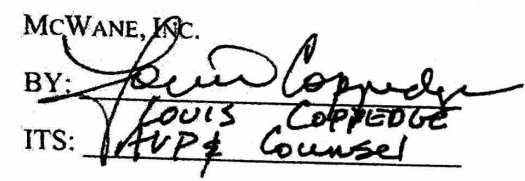 McWANE, INC.
BY: Louis Coppedge
LOUIS COPPEDGE
ITS: AVP & Counsel